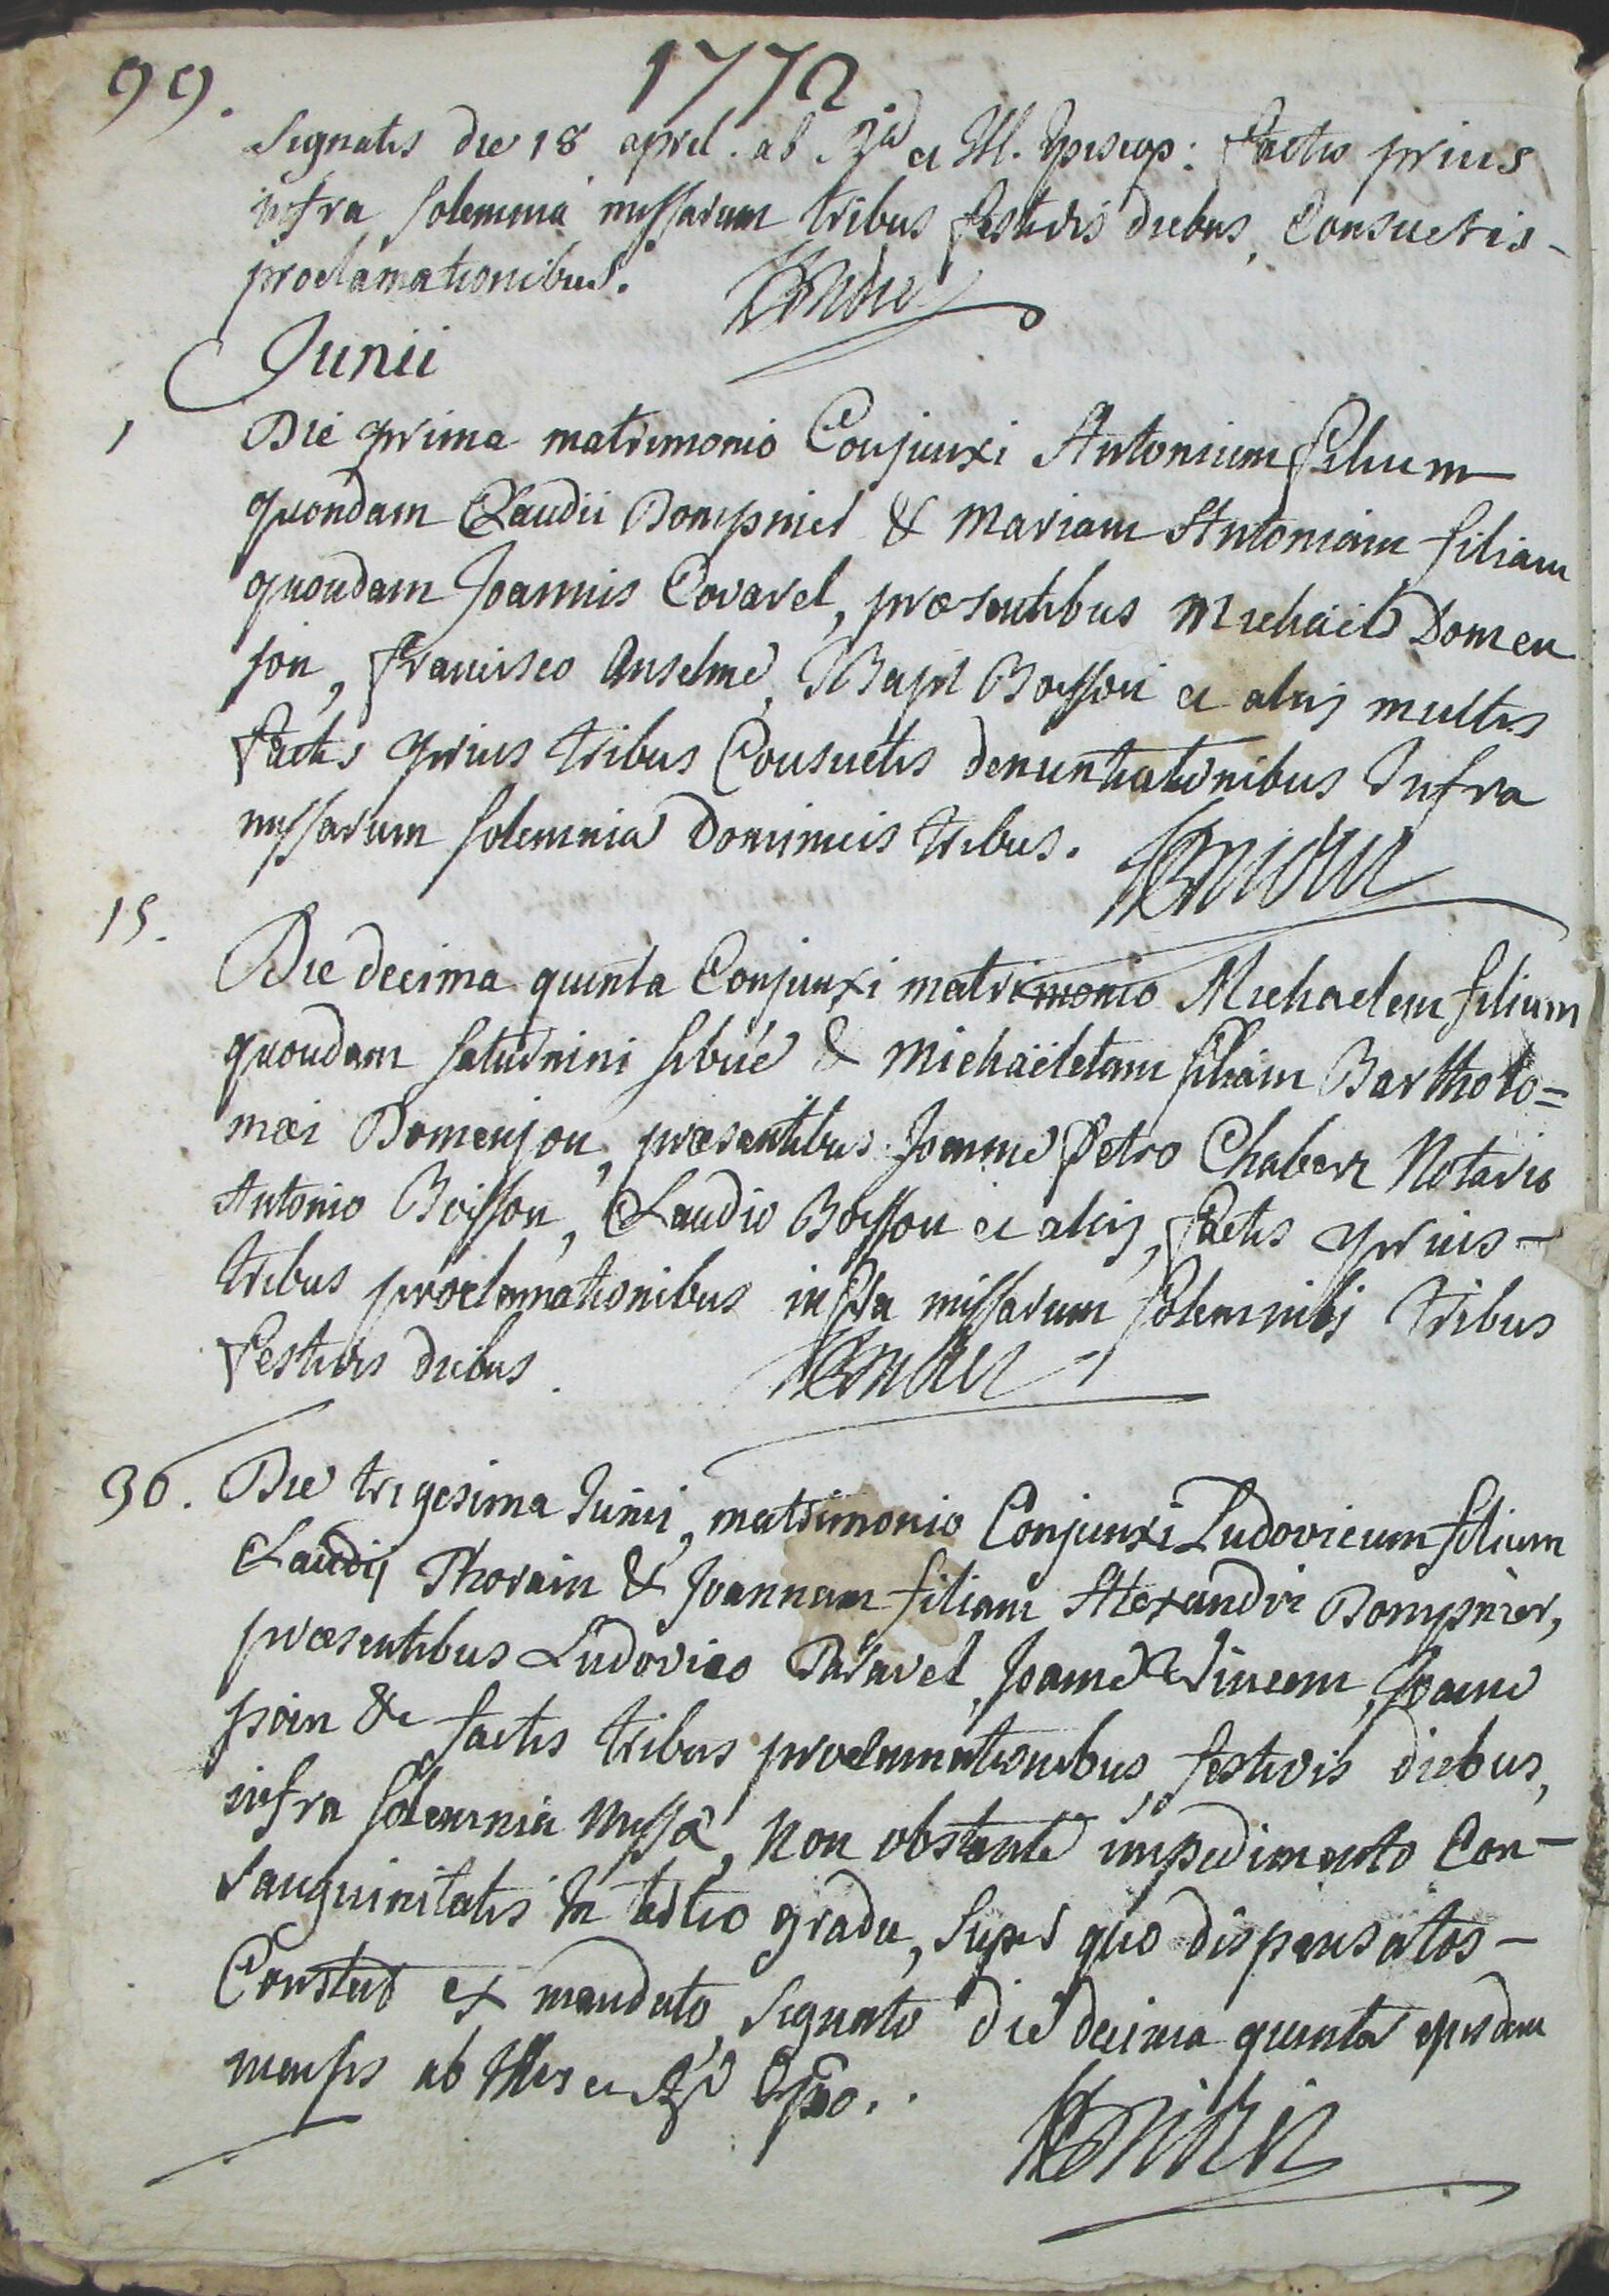 99. 1772
Signatis die 18 april. ab Rd et Ill. Episcop: factis prius
infra solemnia missarum tribus festivis diebus, Consuetis -
proclamationibus.
Junii
1 Die prima matrimonio Conjunxi Antonium filium
quondam Claudii Dompnier & Mariam Antoniam filiam
quondam Joannis Covarel, præsentibus Michäele Domen
jon, francisco Anselme, JBapt Boisson et aliis multis
factis prius tribus Consuetis denuntiationibus Infra
missarum solemnia Dominicis tribus.
15. Die decima quinta Conjunxi matrimonio Michaelem filium
quondam saturnini sibué & Michäeletam filiam Bartholo=
mæi Domenjon, præsentibus Joanne Petro Chabert Notario
Antonio Boisson, Claudio Boisson et aliis, factis prius -
tribus proclamationibus infra missarum solemnibus tribus
festivis diebus.
30. Die trigesima Junii, matrimonio Conjunxi Ludovicum filium
Claudii Thorain & Joannam filiam Alexandri Dompnier,
præsentibus Ludovico Taravel, Joanne Vincent, Joanne
& factis tribus proclamationibus, festivis diebus,
infra solemnia missæ, Non obstante impedimento Con-
sanguinitatis In tertio gradu, super quo dispensatos -
Constat ex mandato, signato die decima quinta ejusdem
mensis ab Ill et Rd Epo.